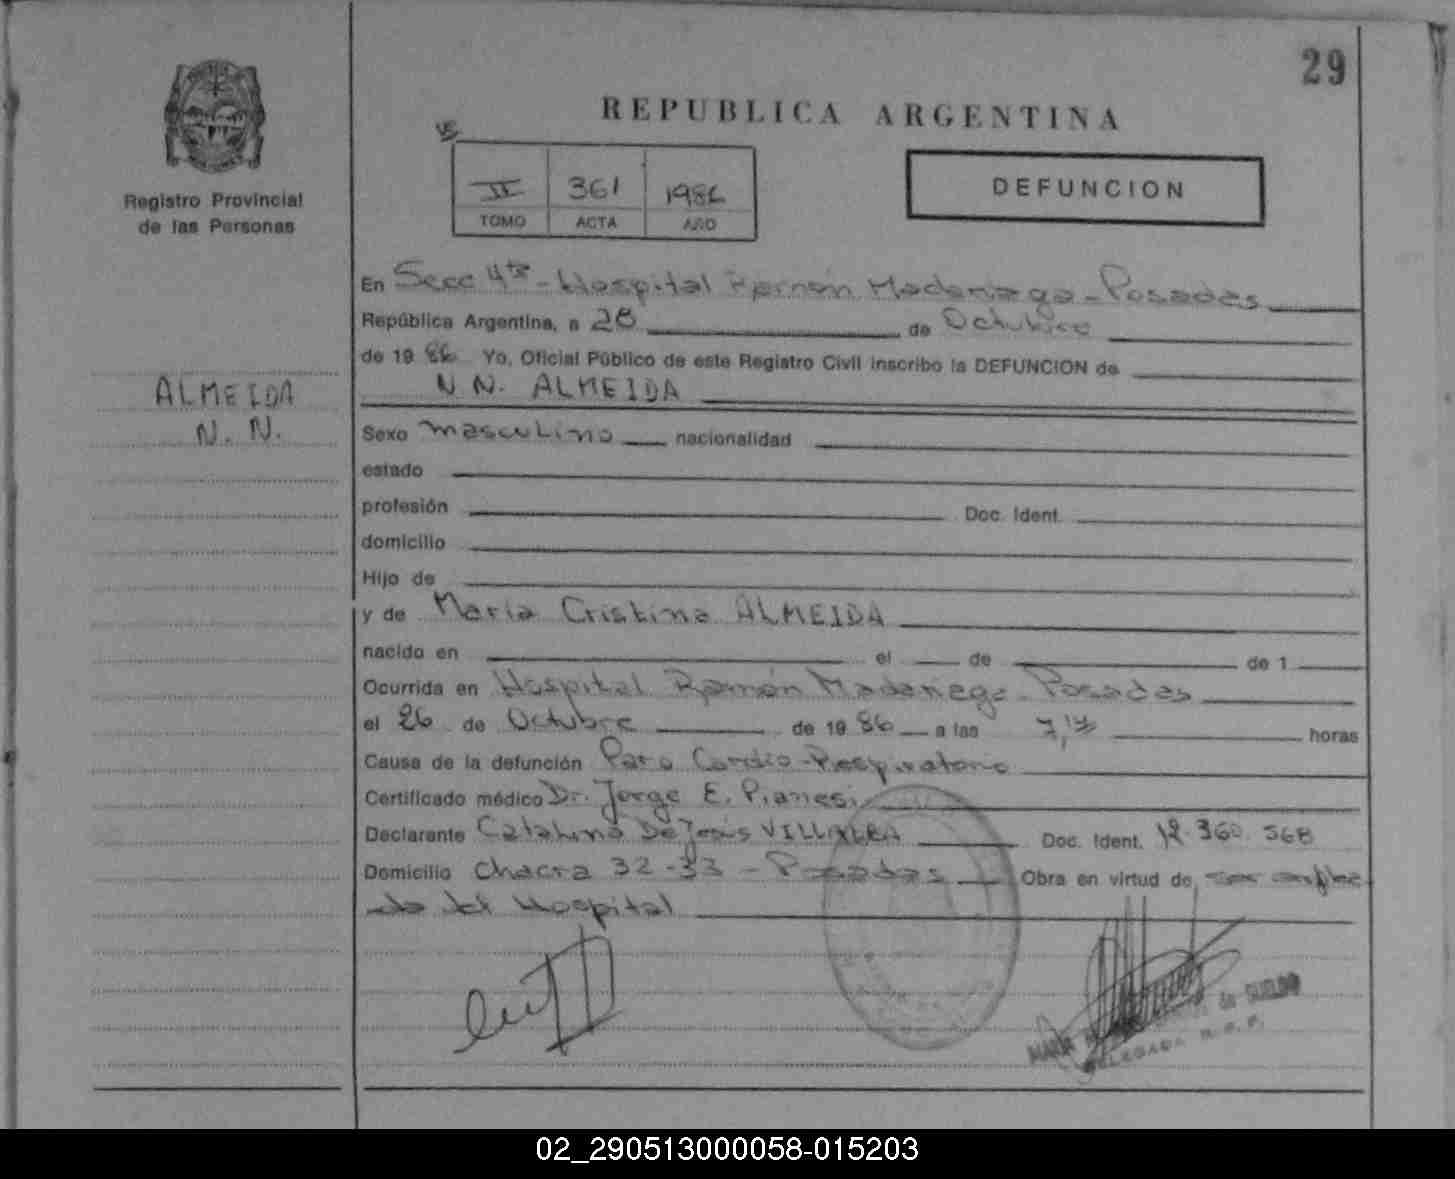 29
REPUBLICA ARGENTINA
II 361 1986
TOMO ACTA AÑO
DEFUNCION
Registro Provincial
de las Personas
ALMEIDA
N. N.
En Secc 4ta - Hospital Ramón Madariaga - Posadas
República Argentina, a 28 de Octubre
de 19 86 Yo, Oficial Público de este Registro Civil inscribo la DEFUNCION de
N. N. ALMEIDA
Sexo masculino nacionalidad
estado
profesión Doc. Ident.
domicilio
Hijo de
y de María Cristina ALMEIDA
nacido en el de de 1
Ocurrida en Hospital Ramón Madariaga - Posadas
el 26 de Octubre de 19 86 a las horas
Causa de la defunción Paro Cardio-Respiratorio
Certificado médico Dr. Jorge E. Pianesi
Declarante Catalina De Jesús VILLALBA Doc. Ident. 12.360.568
Domicilio Chacra 32-33 - Posadas Obra en virtud de ser emplea
do del Hospital
MARIA de SUELDO
DELEGADA R. P. P.
02_290513000058-015203